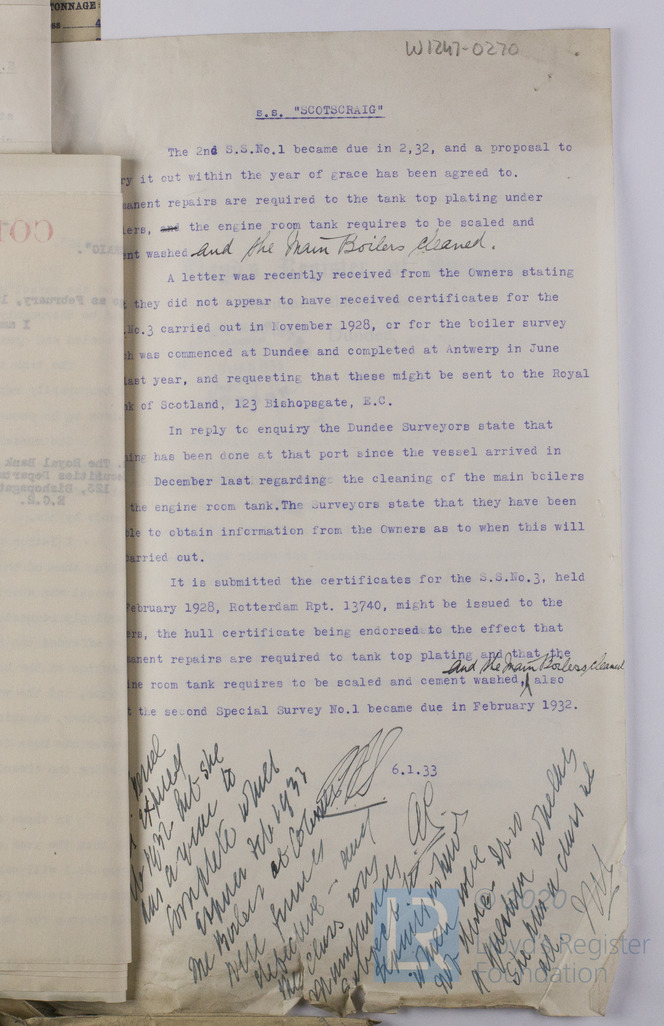 TONNAGE
W1247-0270
s.s. "SCOTSCRAIG"
The 2nd S.S.No.1 became due in 2,32, and a proposal to
ry it out within the year of grace has been agreed to.
manent repairs are required to the tank top plating under
lers, and the engine room tank requires to be scaled and
nt washed and the Main Boilers cleaned.
A letter was recently received from the Owners stating
they did not appear to have received certificates for the
.No.3 carried out in November 1928, or for the boiler survey
ch was commenced at Dundee and completed at Antwerp in June
last year, and requesting that these might be sent to the Royal
k of Scotland, 123 Bishopsgate, E.C.
In reply to enquiry the Dundee Surveyors state that
ing has been done at that port since the vessel arrived in
December last regarding the cleaning of the main boilers
the engine room tank.The Surveyors state that they have been
ble to obtain information from the Owners as to when this will
carried out.
It is submitted the certificates for the S.S.No.3, held
February 1928, Rotterdam Rpt. 13740, might be issued to the
ers, the hull certificate being endorsed to the effect that
manent repairs are required to tank top plating and that the
and the Main Boilers, cleaned
ine room tank requires to be scaled and cement washed, also
t the second Special Survey No.1 became due in February 1932.
6.1.33
expired
1932 but she
has a year to
complete which
expires Feb 1933
The Boilers at
were found
defective - and
the class was
subject to
when were
not done. It is
a question whether
she has a class at
all
© 2020
Lloyd's Register
Foundation